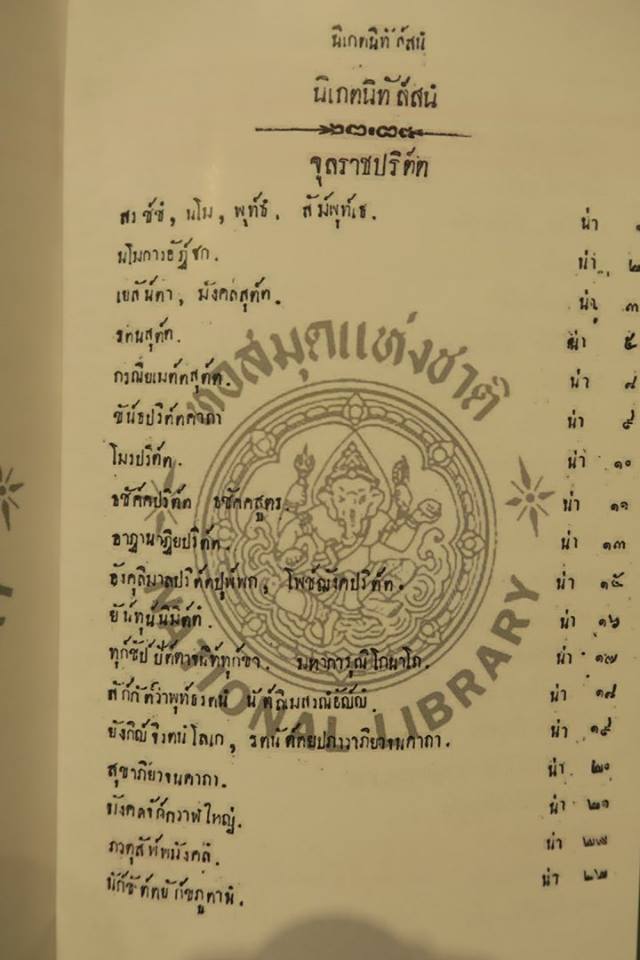 นิเกตนิทัสสนํ
นิเกตนิทัสสนํ
จุลราชปริตต
สรชฺชํ, นโม, พุทธํ. สัมพุทเธ. น่า ๑
นโมการอัฏฐก. น่า ๒
เยสันตา, มังคลสุตต. น่า ๓
รตนสุตต. น่า ๕
กรณียเมตตสุตต. น่า ๘
ขันธปริตตคาถา น่า ๙
โมรปริตต. น่า ๑๐
ธชัคคปริตต ธชัคคสูตร. น่า ๑๑
อาฏานาฏิยปริตต. น่า ๑๓
อังคุลิมาลปริตตปุพพก, โพชฌังคปริตต. น่า ๑๕
ยันทุนนิมิตตํ. น่า ๑๖
ทุกขัปปัตตาจนิททุกขา. มหาการุณิโกนาโถ. น่า ๑๗
สักกัตวาพุทธรตนํ นัตถิเมสรณํอัญญํ. น่า ๑๘
ยังกิญจิรตนํโลเก, รตนัตตยปภาวาภิยาจนคาถา. น่า ๑๙
สุขาภิยาจนคาถา. น่า ๒๐
มังคลจักกวาฬใหญ่. น่า ๒๑
ภวตุสัพพมังคลํ. น่า
นักขัตตยักขภูตานํ. น่า ๒๒
หอสมุดแห่งชาติ
NATIONAL LIBRARY